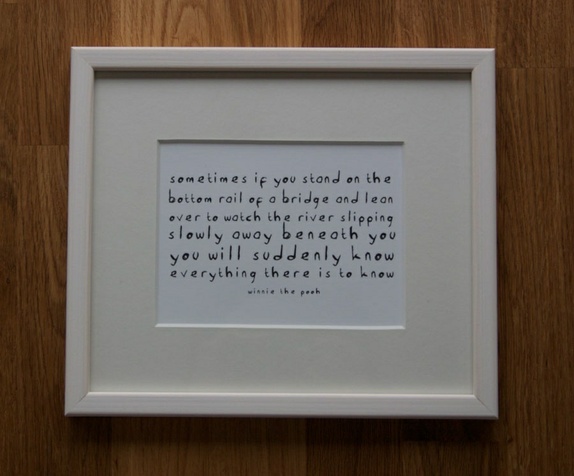 sometimes if you stand on the
bottom rail of a bridge and lean
over to watch the river slipping
slowly away beneath you
you will suddenly know
everything there is to know
winnie the pooh